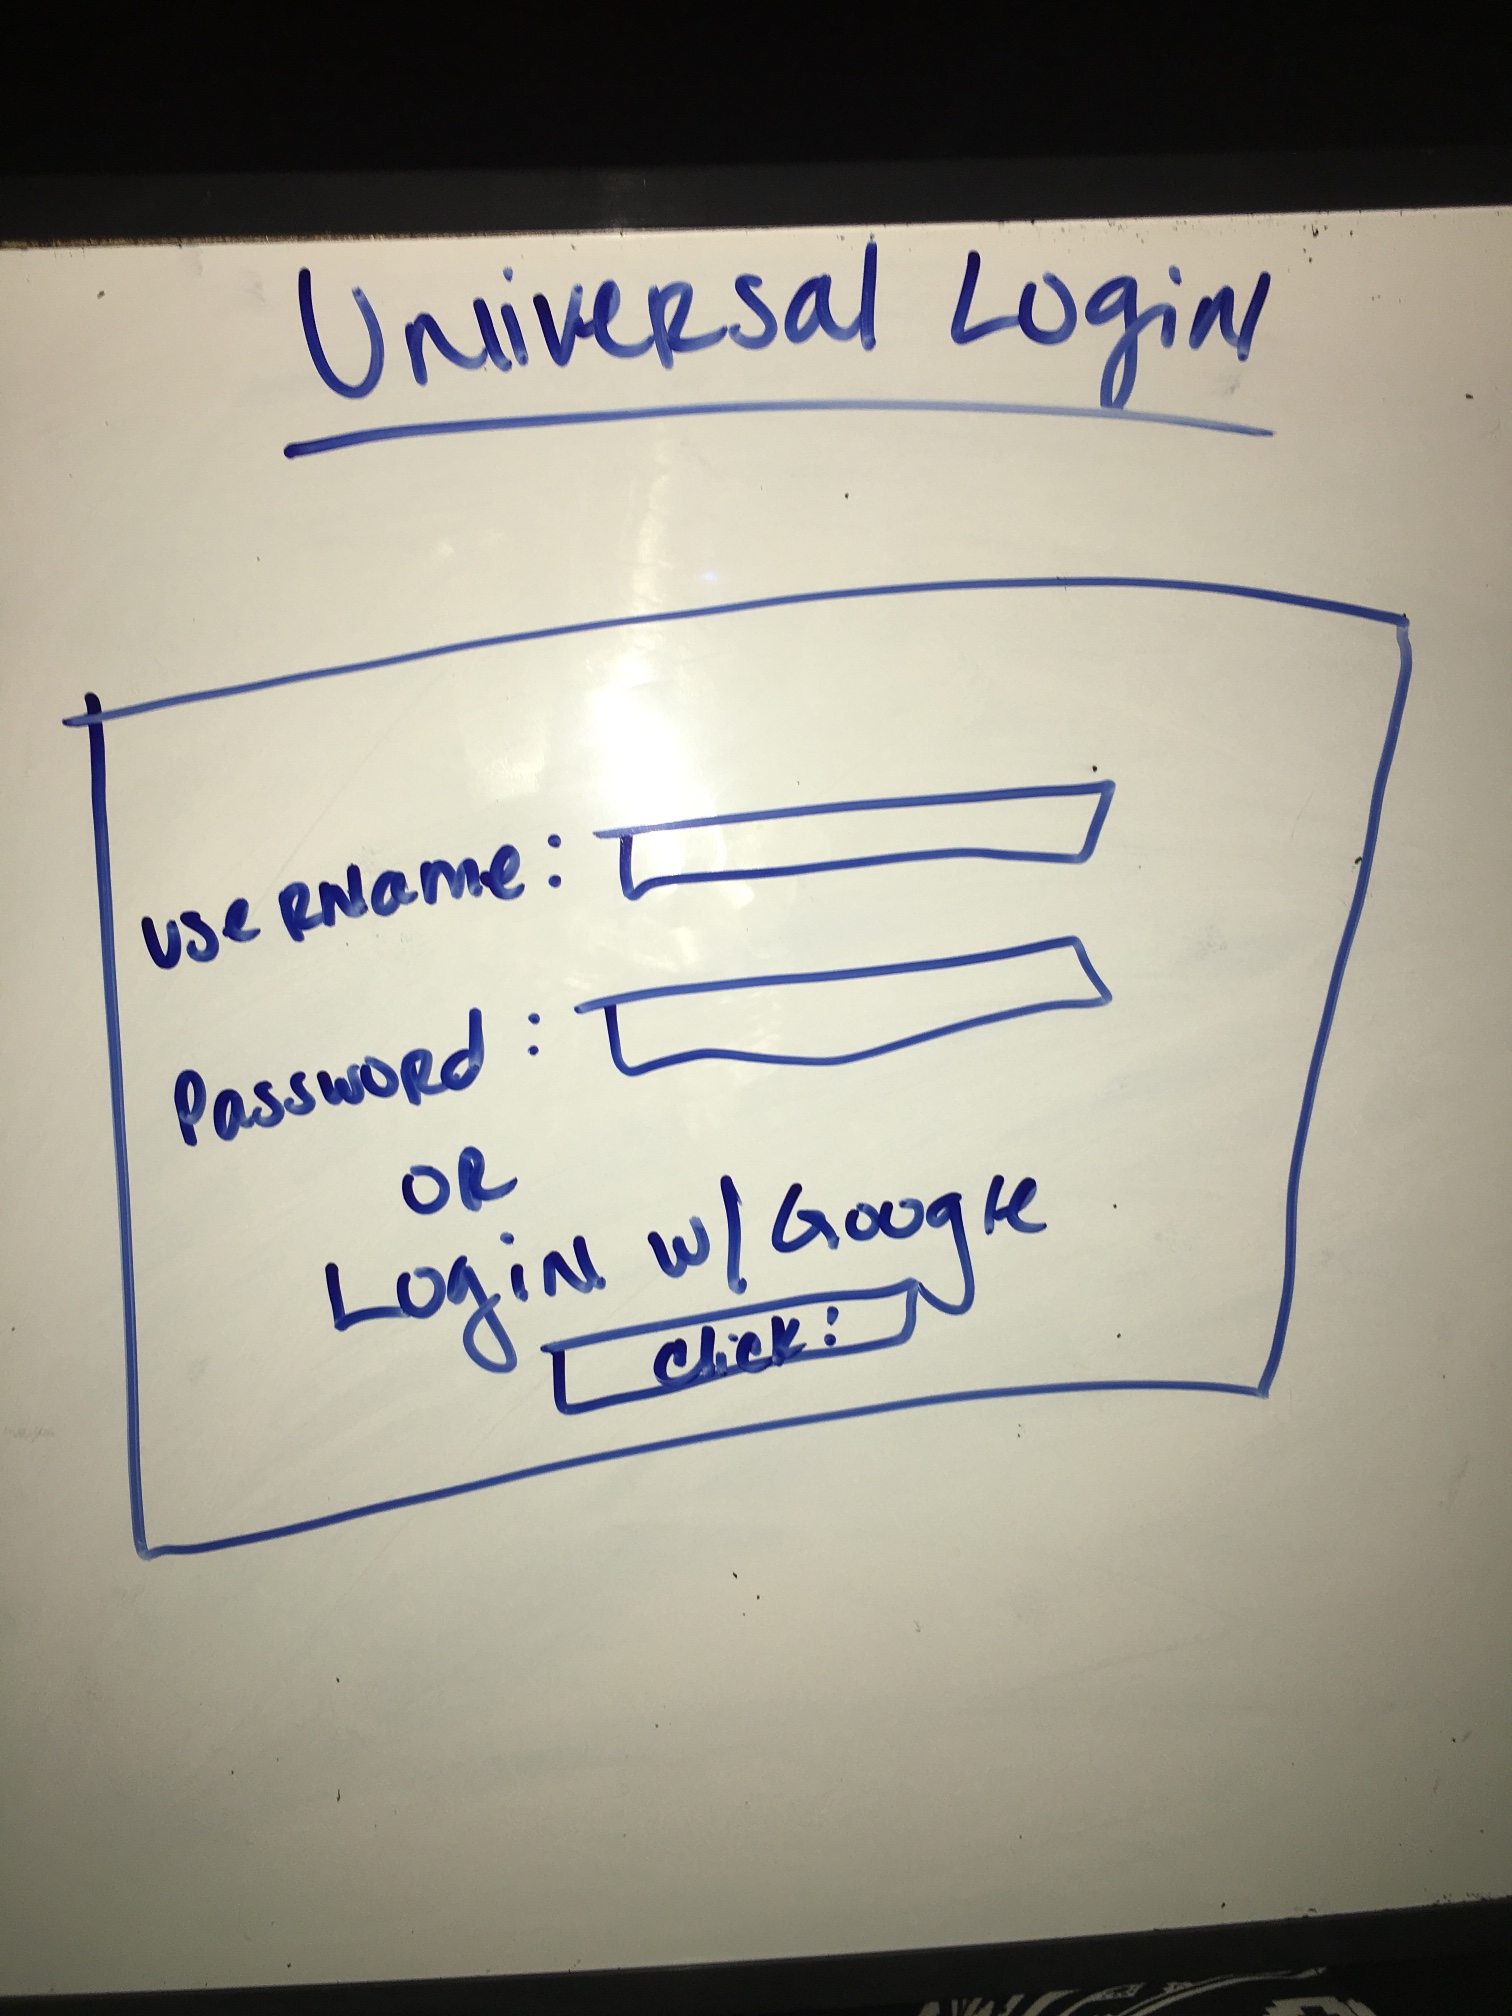 Universal Login
username:
Password:
OR
Login w/ Google
click: